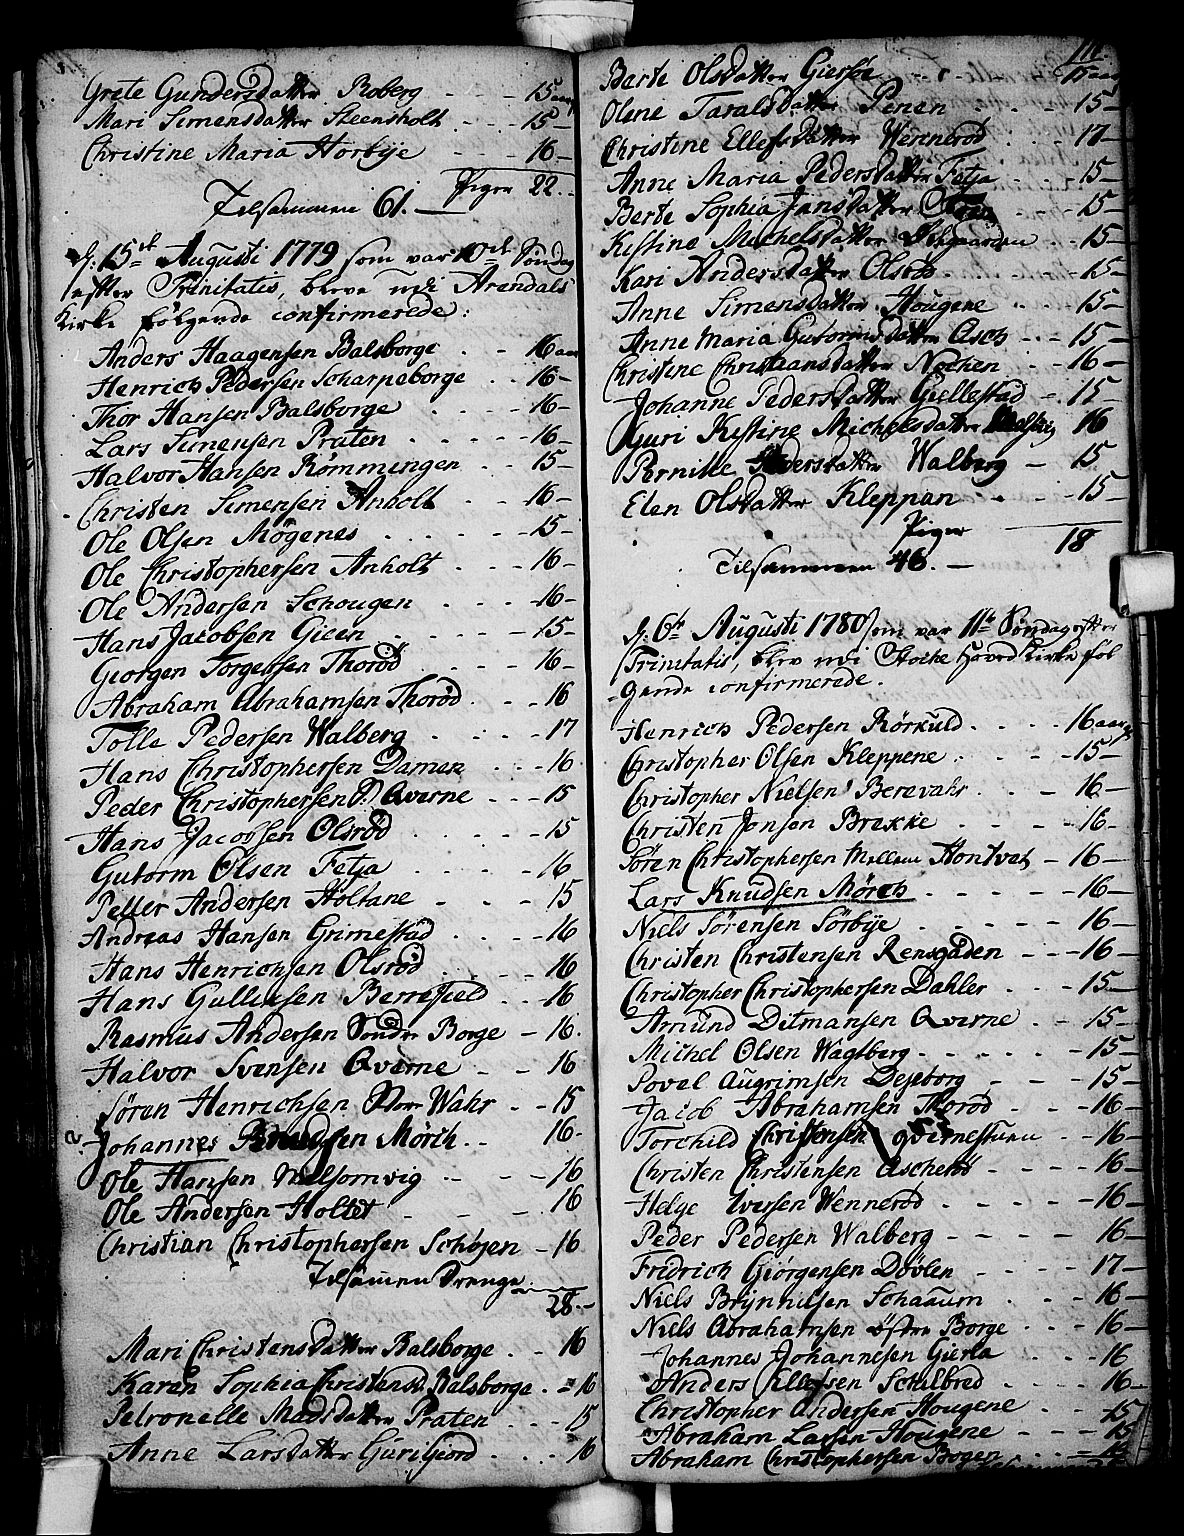 Grete Gundersdatter Roberg - - - 15 aar
Mari Simensdatter Steensholt - - - 15 -
Christine Maria Horbye - - - 16 -
Piger 22.
Tilsammen 61. -
D: 15de Augusti 1779 som var 10de Søndag
efter Trinitatis, bleve udi Arendals
Kirke følgende confirmerede:
Anders Haagensen Balsborge - - 16 aar
Henrich Pedersen Scharpeborge - - 16 -
Thor Hansen Balsborge - - - 16 -
Lars Simensen Præten - - - 16 -
Halvor Hansen Römmingen - - 15 -
Christen Simensen Anholt - - 16 -
Ole Olsen Mögenes - - - 15 -
Ole Christophersen Anholt - - 16 -
Ole Andersen Schougen - - - 16 -
Hans Jacobsen Gieen - - - 15 -
Giorgen Torgersen Thoröd - - - 16 -
Abraham Abrahamsen Thoröd - - - 16
Tolle Pedersen Walberg - - - 17
Hans Christophersen Damen - - 16
Peder Christophersen Qverne - - - 15
Hans Jacobsen Olsröd - - - 15
Gutorm Olsen Fetja - - - 16
Peller Andersen Holtane - - - 15
Andreas Hansen Grimestad - - - 16
Hans Henrichsen Olsröd - - - 16
Hans Gullichsen Berrefield - - - 16
Rasmus Andersen Söndre Borge - 16.
Halvor Svensen Qverne - - 16
Sören Henrichsen Wahr - - 15
Johannes Knudsen Mörch - - 16.
Ole Hansen Melsomvig - - - 16
Ole Andersen Holtet - - - 16
Christian Christophersen Schöjen - 16
Tilsamen Drenge
28. -
Mari Christensdatter Balsborge - - 16
Karen Sophia Christensd. Balsborge - 16
Petronelle Madsdatter Præten - - - 15
Anne Larsdatter Gurigiord - - - 16
Berte Olsdatter Giersøe - - 15 aar
Olene Taraldsdatter Penen - - - 15 -
Christine Ellefsdatter Wenneröd - - - 17 -
Anne Maria Pedersdatter Fetja - - 15 -
Berte Sophia Jansdatter - - 15 -
Kistine Michelsdatter - - 15 -
Kari Andersdatter Olsröd - - - 15 -
Anne Simensdatter Hougene - - - 15 -
Anne Maria Gutormsdatter Asch - - - 15 -
Christine Christiansdatter Nochen - - 16 -
Johanne Pedersdatter Giellestad - 15 -
Guri Kistine Michelsdatter 16
Pernille Iversdatter Walberg - 15
Elen Olsdatter Kleppan - - - 15 -
Piger 18
Tilsammen 46. -
D: 6te Augusti 1780 som var 11te Søndag efter
Trinitatis, blev udi Stocke Hoved Kirke føl-
gende confirmerede.
Henrich Pedersen Rörkuld - - - 16 aar
Christopher Olsen Kleppene - - - 15 -
Christopher Nielsen Berevahr - - - 16 -
Christen Jensen Brække - - - 16 -
Sören Christophersen Mellem Hontvet - 16 -
Lars Knudsen Mörch - - - 16 -
Niels Sörensen Sörbye - - - 16
Christen Christensen Rensgåden - - - 16 -
Christopher Christophersen Dahler - - - 15 -
Amund Ditmansen Qverne - - 15 -
Michel Olsen Wagtberg - - - 15 -
Povel Augrimsen Dejeborg - - 15 -
Jacob Abrahamsen Thoröd - - - 16 -
Torchild Christensen Qvernestuen - - 16 -
Christen Christensen Aschens - - - 16 -
Helge Iversen Wenneröd - - - 16 -
Peder Pedersen Walberg - - - 16 -
Fridrich Giörgensen Döölen - - - 17 -
Niels Brynnilsen Schauum - - - 16 -
Niels Abrahamsen Østre Borge - - - 16 -
Johannes Johannesen Gierla - - - 16
Anders Ellefsen Schilbred - - - 16 -
Christopher Andersen Hougene - - - 15
Abraham Larsen Hougene - - - 15
Abraham Christophersen Bogen - - -